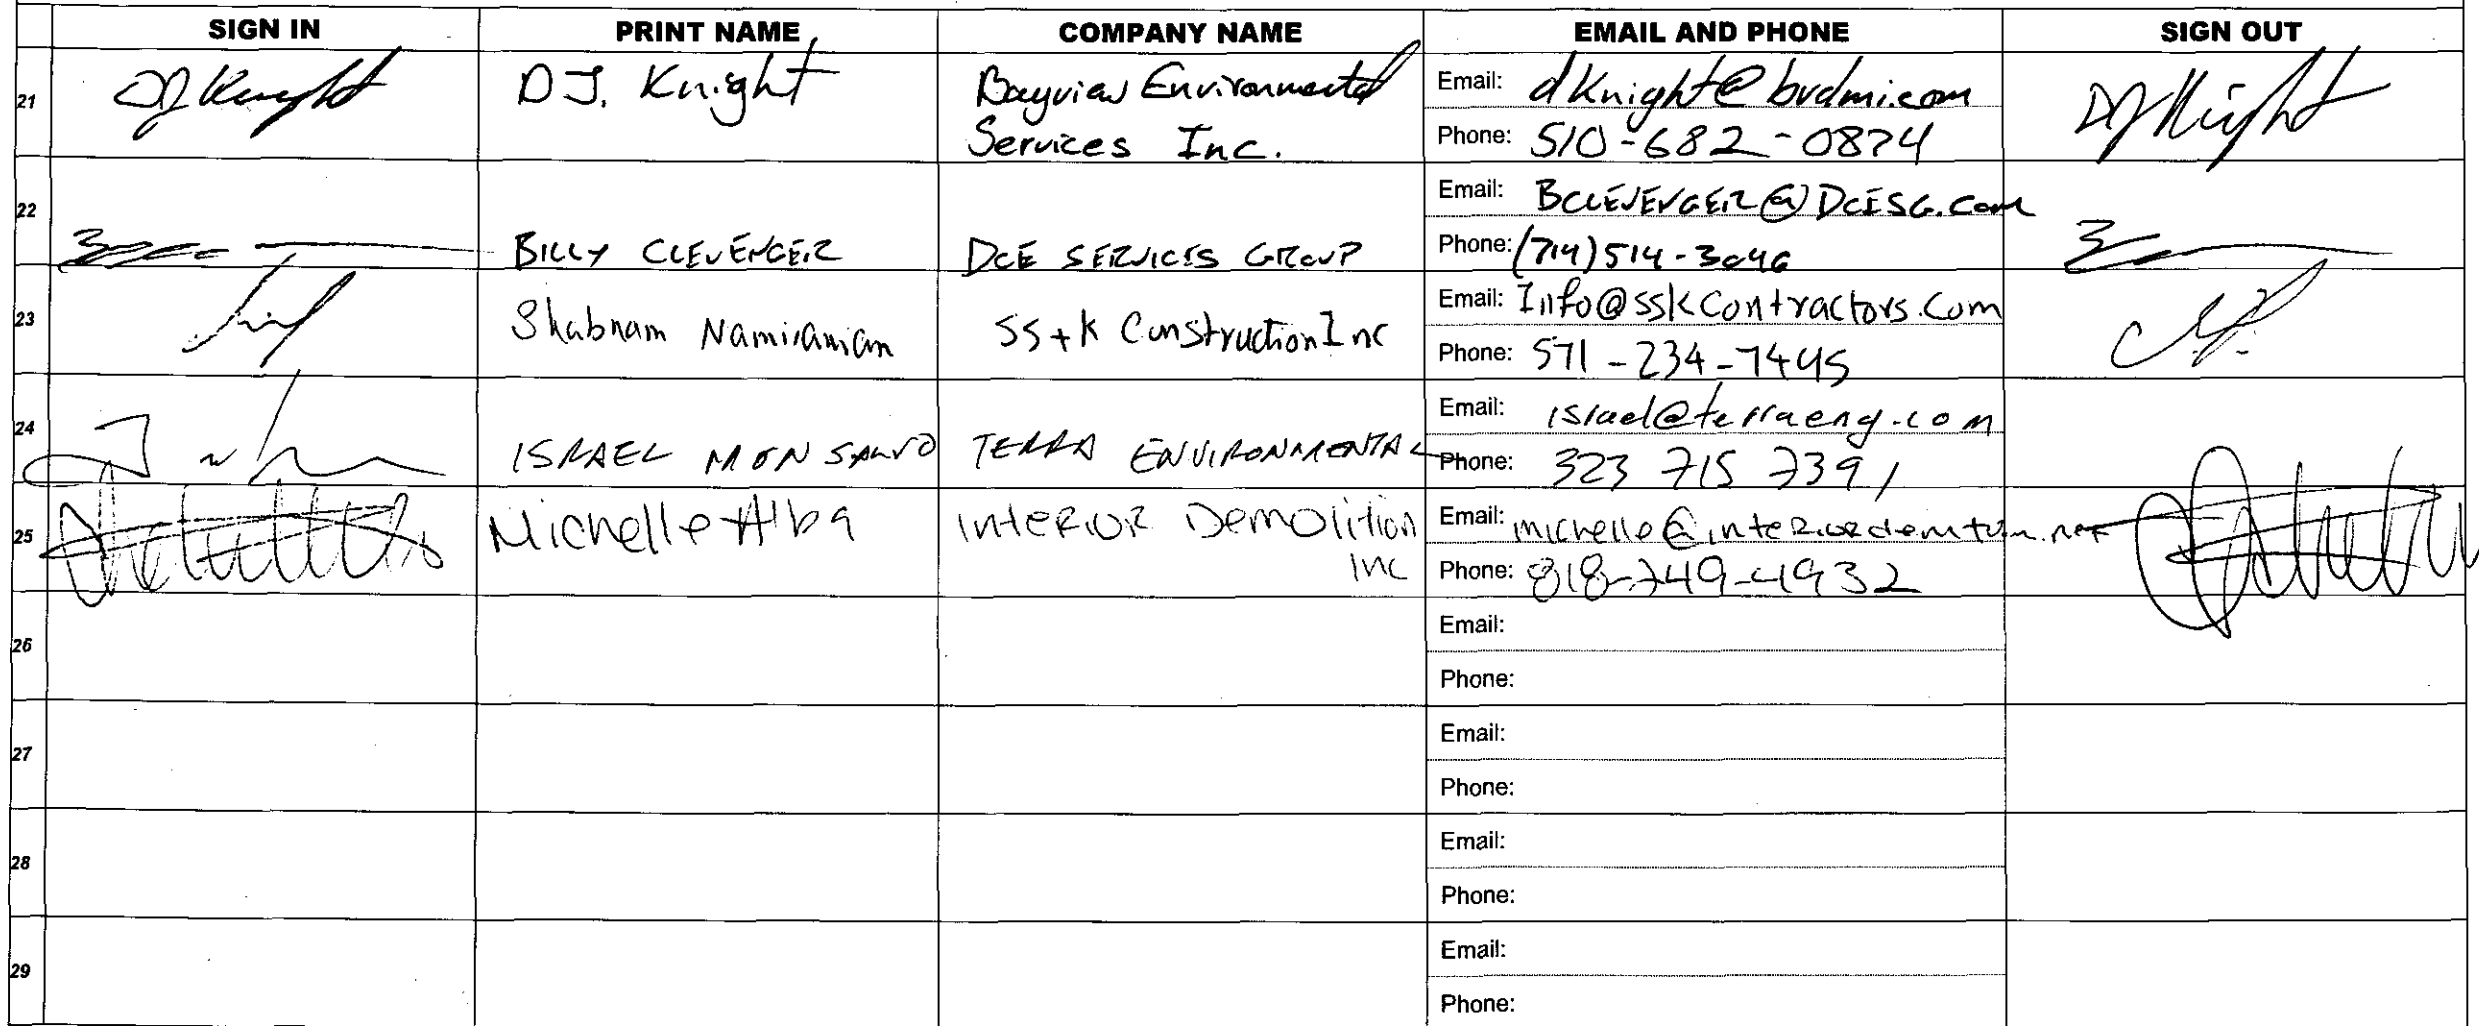 SIGN IN PRINT NAME COMPANY NAME EMAIL AND PHONE SIGN OUT
21 DJ Knight D J. Knight Bayview Environmental Email: dKnight@bvdmi.com DJ Knight
Services Inc. Phone: 510-682-0874
22 Email: BCLEVENGER@DCESG.com
BILLY CLEVENGER DCE SERVICES GROUP Phone: (714)514-3046
23 Shabnam Namiranian SS+K Construction Inc Email: Info@sskContractors.com
Phone: 571-234-7445
24 ISRAEL MONSALVO TERRA ENVIRONMENTAL Email: israel@terraeng.com
Phone: 323 715 7391
25 Michelle Alba INTERIOR DEMOLITION Email:
Inc Phone: 818-249-4932
26 Email:
Phone:
27 Email:
Phone:
28 Email:
Phone:
29 Email:
Phone: